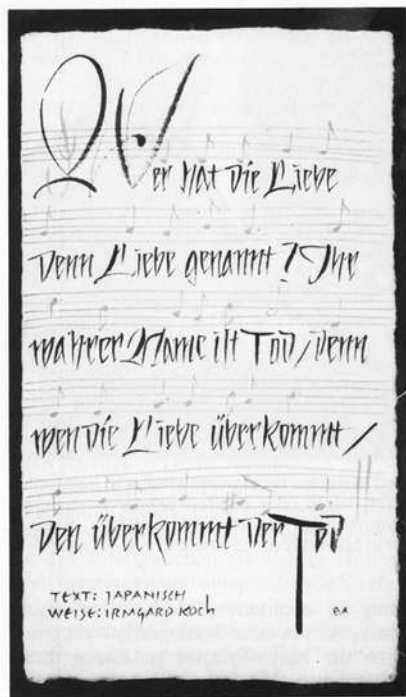 Wer hat die Liebe
denn Liebe genannt? Ihr
wahrer Name ist Tod/denn
wen die Liebe überkommt/
den überkommt der Tod
TEXT: JAPANISCH
WEISE: IRMGARD KOCH